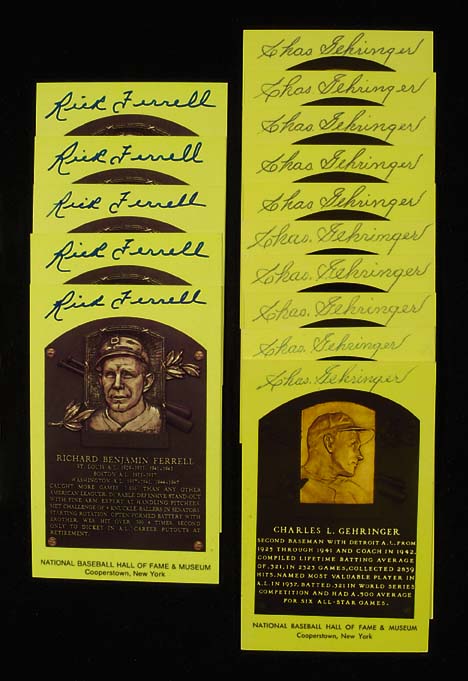 Rick Ferrell
Rick Ferrell
Rick Ferrell
Rick Ferrell
Rick Ferrell
RICHARD BENJAMIN FERRELL
ST. LOUIS A.L. 1929-1933, 1941-1943
BOSTON A.L. 1933-1937
WASHINGTON A.L. 1937-1941, 1944-1947
CAUGHT MORE GAMES THAN ANY OTHER
AMERICAN LEAGUER. DURABLE DEFENSIVE STAND-OUT
WITH FINE ARM. EXPERT AT HANDLING PITCHERS.
MET CHALLENGE OF 4 KNUCKLE BALLERS IN SENATORS'
STARTING ROTATION. OFTEN FORMED BATTERY WITH
BROTHER, WES. HIT OVER .300 4 TIMES. SECOND
ONLY TO DICKEY IN A.L. CAREER PUTOUTS AT
RETIREMENT.
NATIONAL BASEBALL HALL OF FAME & MUSEUM
Cooperstown, New York
Chas. Gehringer
Chas. Gehringer
Chas. Gehringer
Chas. Gehringer
Chas. Gehringer
Chas. Gehringer
Chas. Gehringer
Chas. Gehringer
Chas. Gehringer
Chas. Gehringer
CHARLES L. GEHRINGER
SECOND BASEMAN WITH DETROIT A.L. FROM
1925 THROUGH 1941 AND COACH IN 1942.
COMPILED LIFETIME BATTING AVERAGE
OF .321, IN 2323 GAMES, COLLECTED 2839
HITS. NAMED MOST VALUABLE PLAYER IN
A.L. IN 1937. BATTED .321 IN WORLD SERIES
COMPETITION AND HAD A .500 AVERAGE
FOR SIX ALL-STAR GAMES.
NATIONAL BASEBALL HALL OF FAME & MUSEUM
Cooperstown, New York